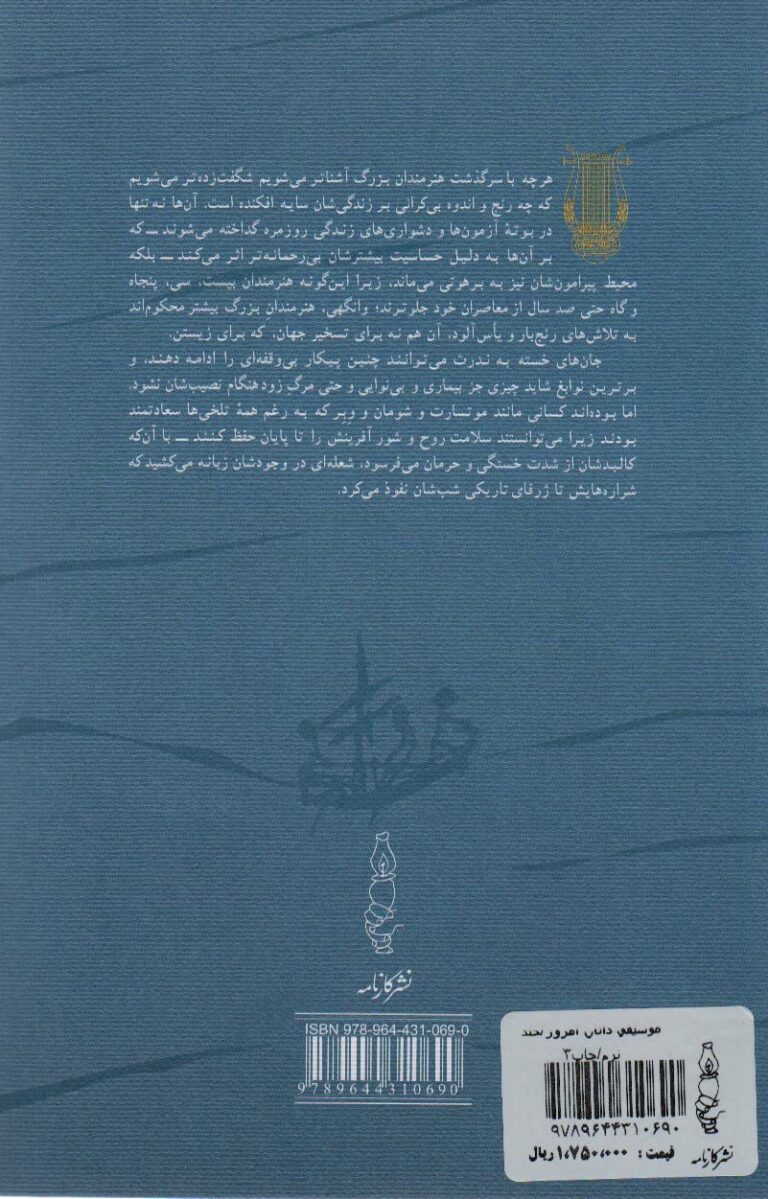 هر چه با سرگذشت هنرمندان بزرگ آشناتر می‌شویم شگفت‌زده‌تر می‌شویم
که چه رنج و اندوه بی‌کرانی بر زندگی‌شان سایه افکنده است. آن‌ها نه تنها
در بوتهٔ آزمون‌ها و دشواری‌های زندگی روزمره گداخته می‌شوند ــ که
بر آن‌ها به دلیل حساسیت بیشترشان بی‌رحمانه‌تر اثر می‌کند ــ بلکه
محیط پیرامون‌شان نیز به برهوتی می‌ماند، زیرا این‌گونه هنرمندان بیست، سی، پنجاه
و گاه حتی صد سال از معاصران خود جلوترند؛ وانگهی، هنرمندان بزرگ بیشتر محکوم‌اند
به تلاش‌های رنج‌بار و یأس‌آلود، آن هم نه برای تسخیر جهان، که برای زیستن.
جان‌های خسته به ندرت می‌توانند چنین پیکار بی‌وقفه‌ای را ادامه دهند، و
برترین نوابغ شاید چیزی جز بیماری و بی‌نوایی و حتی مرگِ زودهنگام نصیب‌شان نشود.
اما بوده‌اند کسانی مانند موتسارت و شومان و وِبِر که به رغم همهٔ تلخی‌ها سعادتمند
بودند زیرا می‌توانستند سلامت روح و شور آفرینش را تا پایان حفظ کنند ــ با آن‌که
کالبدشان از شدت خستگی و حرمان می‌فرسود، شعله‌ای در وجودشان زبانه می‌کشید که
شراره‌هایش تا ژرفای تاریکی شب‌شان نفوذ می‌کرد.
نشر کارنامه
ISBN 978-964-431-069-0
9 789644 310690
موسیقی دانان امروز/جلد
نرم/چاپ۳
۹۷۸۹۶۴۴۳۱۰۶۹۰
قیمت : ۱,۷۵۰,۰۰۰ ریال
نشر کارنامه